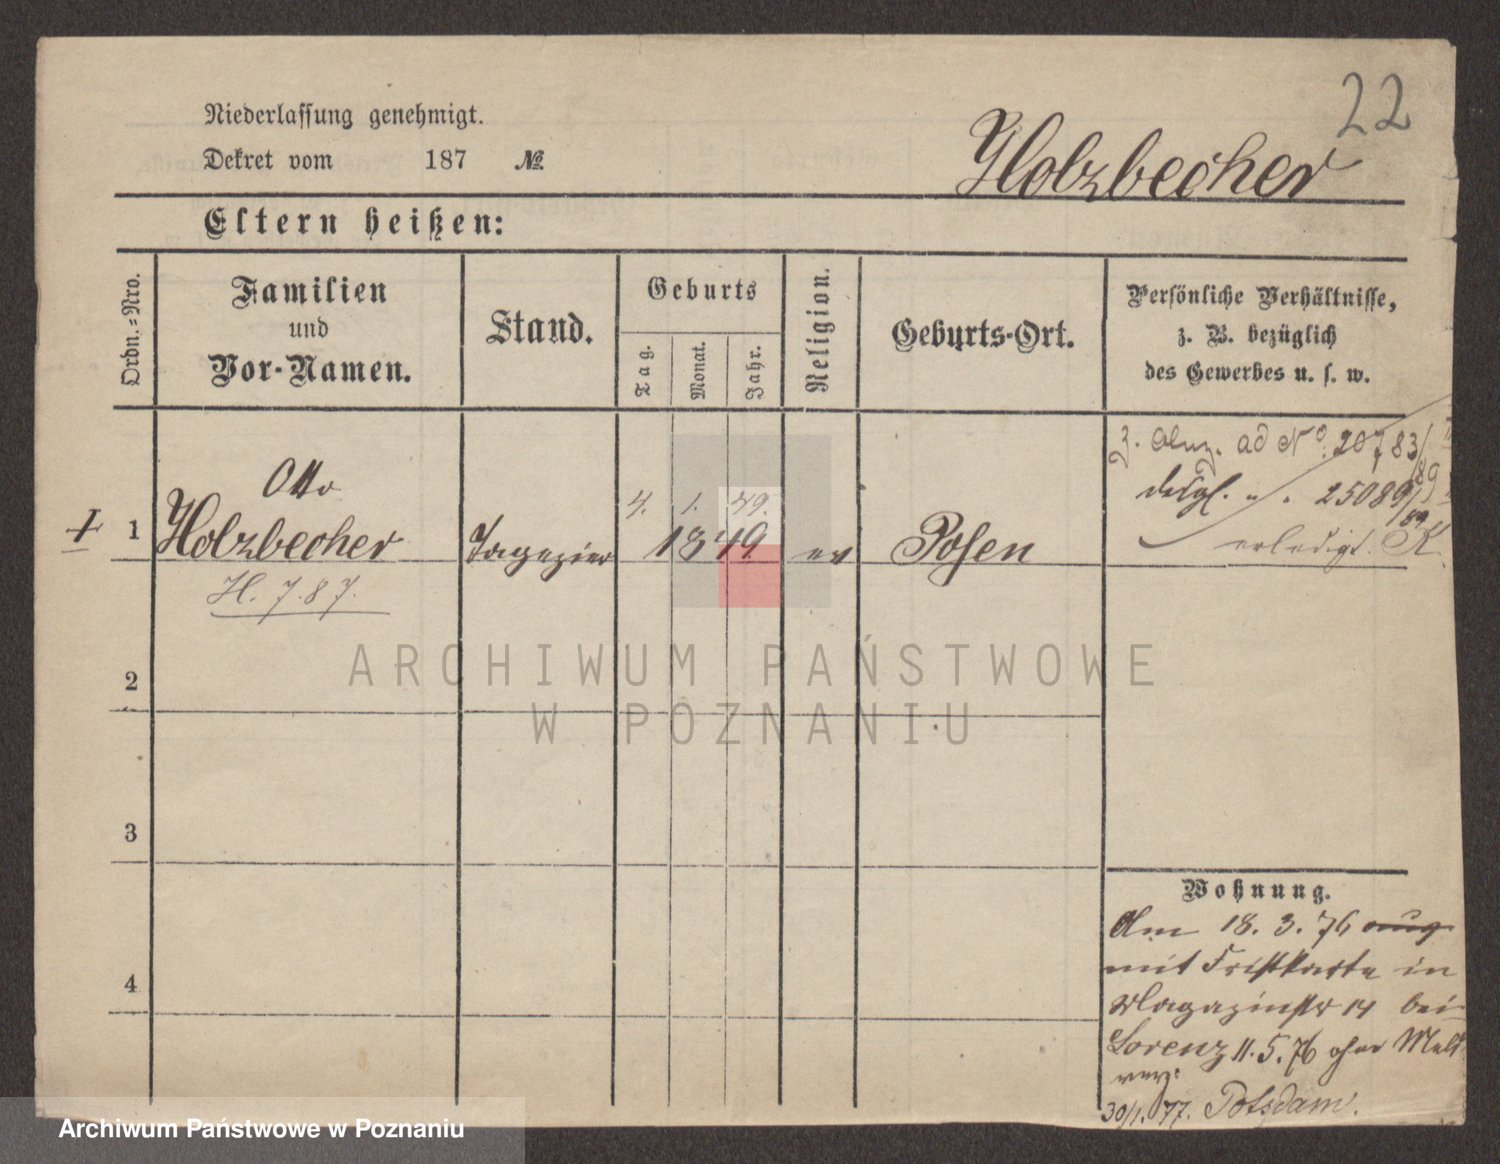 22
Niederlassung genehmigt.
Dekret vom 187 №
Holzbecher
Eltern heißen:
Ordn.-Nro.
Familien
und
Vor-Namen.
Stand.
Geburts
Tag.
Monat.
Jahr.
Religion.
Geburts-Ort.
Persönliche Verhältnisse,
z. B. bezüglich
des Gewerbes u. s. w.
ad No. 20783/89
desgl. " " 25089/89
erledigt.
Otto
4. 1. 49.
1 Holzbecher Tapezier 1849 ev Posen
H. 7. 87.
2
3
4
Wohnung.
Am 18. 3. 76
mit Fristkarte in
Magazinstr 14 bei
Lorenz 11. 5. 76 ohne Meld
verz.
30/1. 77. Potsdam.
ARCHIWUM PAŃSTWOWE
W POZNANIU
Archiwum Państwowe w Poznaniu